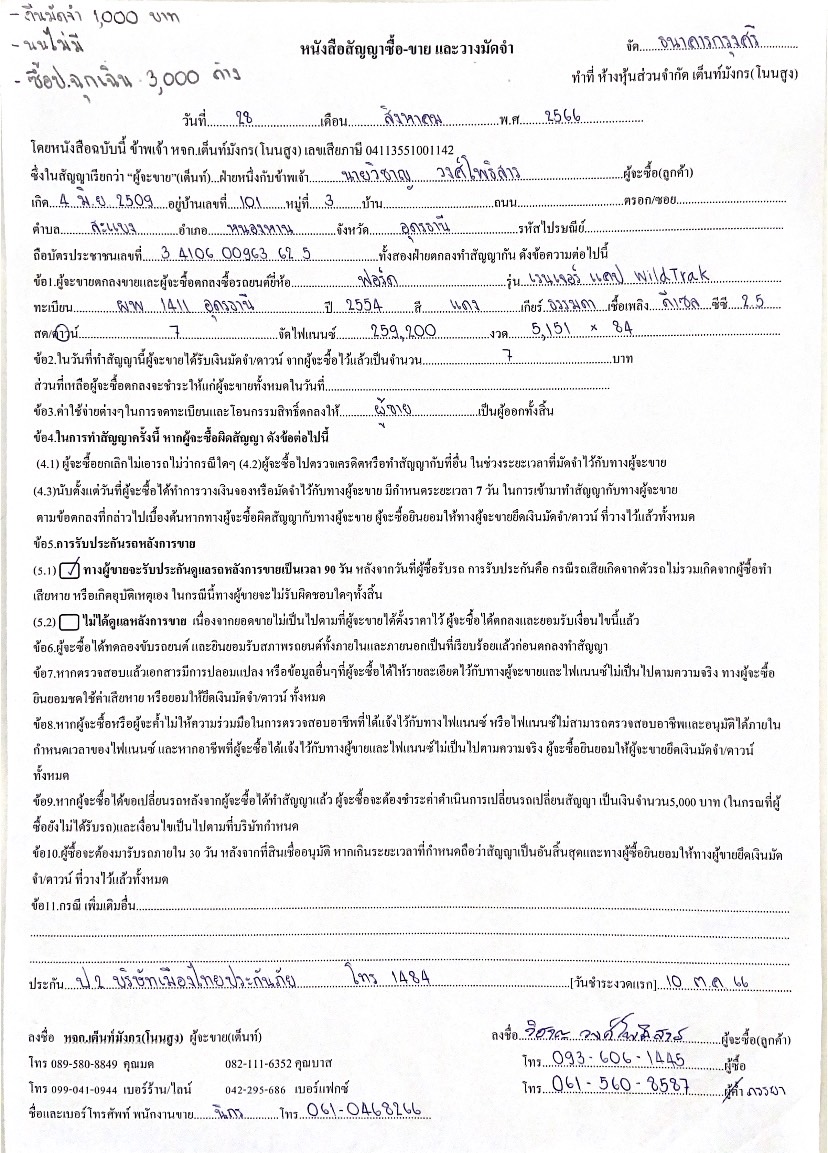 - คืนมัดจำ 1,000 บาท
- นนไม่มี
- ซื้อป.ฉุกเฉิน 3,000 ค้าง
หนังสือสัญญาซื้อ-ขาย และวางมัดจำ
จัด...ธนาคารกรุงศรี
ทำที่ ห้างหุ้นส่วนจำกัด เต็นท์มังกร(โนนสูง)
วันที่...28...เดือน...สิงหาคม...พ.ศ...2566
โดยหนังสือฉบับนี้ ข้าพเจ้า หจก.เต็นท์มังกร(โนนสูง) เลขเสียภาษี 04113551001142
ซึ่งในสัญญาเรียกว่า "ผู้จะขาย"(เต็นท์)...ฝ่ายหนึ่งกับข้าพเจ้า...นายวิชาญ วงศ์โพธิสาร...ผู้จะซื้อ(ลูกค้า)
เกิด...4 มิ.ย 2509...อยู่บ้านเลขที่...101...หมู่ที่...3...บ้าน...ถนน...ตรอก/ซอย...
ตำบล...สะแบง...อำเภอ...หนองหาน...จังหวัด...อุดรธานี...รหัสไปรษณีย์...
ถือบัตรประชาชนเลขที่...3 4106 00963 62 5...ทั้งสองฝ่ายตกลงทำสัญญากัน ดังข้อความต่อไปนี้
ข้อ1.ผู้จะขายตกลงขายและผู้จะซื้อตกลงซื้อรถยนต์ยี่ห้อ...ฟอร์ด...รุ่น...เรนเจอร์ แคป WildTrak
ทะเบียน...ผผ 1411 อุดรธานี...ปี...2554...สี...แดง...เกียร์...ธรรมดา...เชื้อเพลิง...ดีเซล...ซีซี...2.5
สด/ดาวน์...7...จัดไฟแนนซ์...259,200...งวด...5,151 × 84
ข้อ2.ในวันที่ทำสัญญานี้ผู้จะขายได้รับเงินมัดจำ/ดาวน์ จากผู้จะซื้อไว้แล้วเป็นจำนวน...7...บาท
ส่วนที่เหลือผู้จะซื้อตกลงจะชำระให้แก่ผู้จะขายทั้งหมดในวันที่...
ข้อ3.ค่าใช้จ่ายต่างๆในการจดทะเบียนและโอนกรรมสิทธิ์ตกลงให้...ผู้ขาย...เป็นผู้ออกทั้งสิ้น
ข้อ4.ในการทำสัญญาครั้งนี้ หากผู้จะซื้อผิดสัญญา ดังข้อต่อไปนี้
(4.1) ผู้จะซื้อยกเลิกไม่เอารถไม่ว่ากรณีใดๆ (4.2)ผู้จะซื้อไปตรวจเครดิตหรือทำสัญญากับที่อื่น ในช่วงระยะเวลาที่มัดจำไว้กับทางผู้จะขาย
(4.3)นับตั้งแต่วันที่ผู้จะซื้อได้ทำการวางเงินจองหรือมัดจำไว้กับทางผู้จะขาย มีกำหนดระยะเวลา 7 วัน ในการเข้ามาทำสัญญากับทางผู้จะขาย
ตามข้อตกลงที่กล่าวไปเบื้องต้นหากทางผู้จะซื้อผิดสัญญากับทางผู้จะขาย ผู้จะซื้อยินยอมให้ทางผู้จะขายยึดเงินมัดจำ/ดาวน์ ที่วางไว้แล้วทั้งหมด
ข้อ5.การรับประกันรถหลังการขาย
(5.1) ☑ ทางผู้ขายจะรับประกันดูแลรถหลังการขายเป็นเวลา 90 วัน หลังจากวันที่ผู้ซื้อรับรถ การรับประกันคือ กรณีรถเสียเกิดจากตัวรถไม่รวมเกิดจากผู้ซื้อทำ
เสียหาย หรือเกิดอุบัติเหตุเอง ในกรณีนี้ทางผู้ขายจะไม่รับผิดชอบใดๆทั้งสิ้น
(5.2) ☐ ไม่ได้ดูแลหลังการขาย เนื่องจากยอดขายไม่เป็นไปตามที่ผู้จะขายได้ตั้งราคาไว้ ผู้จะซื้อได้ตกลงและยอมรับเงื่อนไขนี้แล้ว
ข้อ6.ผู้จะซื้อได้ทดลองขับรถยนต์ และยินยอมรับสภาพรถยนต์ทั้งภายในและภายนอกเป็นที่เรียบร้อยแล้วก่อนตกลงทำสัญญา
ข้อ7.หากตรวจสอบแล้วเอกสารมีการปลอมแปลง หรือข้อมูลอื่นๆที่ผู้จะซื้อได้ให้รายละเอียดไว้กับทางผู้จะขายและไฟแนนซ์ไม่เป็นไปตามความจริง ทางผู้จะซื้อ
ยินยอมชดใช้ค่าเสียหาย หรือยอมให้ยึดเงินมัดจำ/ดาวน์ ทั้งหมด
ข้อ8.หากผู้จะซื้อหรือผู้จะค้ำไม่ให้ความร่วมมือในการตรวจสอบอาชีพที่ได้แจ้งไว้กับทางไฟแนนซ์ หรือไฟแนนซ์ไม่สามารถตรวจสอบอาชีพและอนุมัติได้ภายใน
กำหนดเวลาของไฟแนนซ์ และหากอาชีพที่ผู้จะซื้อได้แจ้งไว้กับทางผู้ขายและไฟแนนซ์ไม่เป็นไปตามความจริง ผู้จะซื้อยินยอมให้ผู้จะขายยึดเงินมัดจำ/ดาวน์
ทั้งหมด
ข้อ9.หากผู้จะซื้อได้ขอเปลี่ยนรถหลังจากผู้จะซื้อได้ทำสัญญาแล้ว ผู้จะซื้อจะต้องชำระค่าดำเนินการเปลี่ยนรถเปลี่ยนสัญญา เป็นเงินจำนวน5,000 บาท (ในกรณที่ผู้
ซื้อยังไม่ได้รับรถ)และเงื่อนไขเป็นไปตามที่บริษัทกำหนด
ข้อ10.ผู้ซื้อจะต้องมารับรถภายใน 30 วัน หลังจากที่สินเชื่ออนุมัติ หากเกินระยะเวลาที่กำหนดถือว่าสัญญาเป็นอันสิ้นสุดและทางผู้ซื้อยินยอมให้ทางผู้ขายยึดเงินมัด
จำ/ดาวน์ ที่วางไว้แล้วทั้งหมด
ข้อ11.กรณี เพิ่มเติมอื่น...
ประกัน...ป.2 บริษัทเมืองไทยประกันภัย โทร 1484...[วันชำระงวดแรก]...10 ต.ค 66
ลงชื่อ หจก.เต็นท์มังกร(โนนสูง) ผู้จะขาย(เต็นท์)
ลงชื่อ...วิชาญ วงศ์โพธิสาร...ผู้จะซื้อ(ลูกค้า)
โทร 089-580-8849 คุณมด 082-111-6352 คุณบาส
โทร...093-606-1445...ผู้ซื้อ
โทร 099-041-0944 เบอร์ร้าน/ไลน์ 042-295-686 เบอร์แฟกซ์
โทร...061-560-8587...ผู้ค้ำ ภรรยา
ชื่อและเบอร์โทรศัพท์ พนักงานขาย...นิกร...โทร...061-0468266